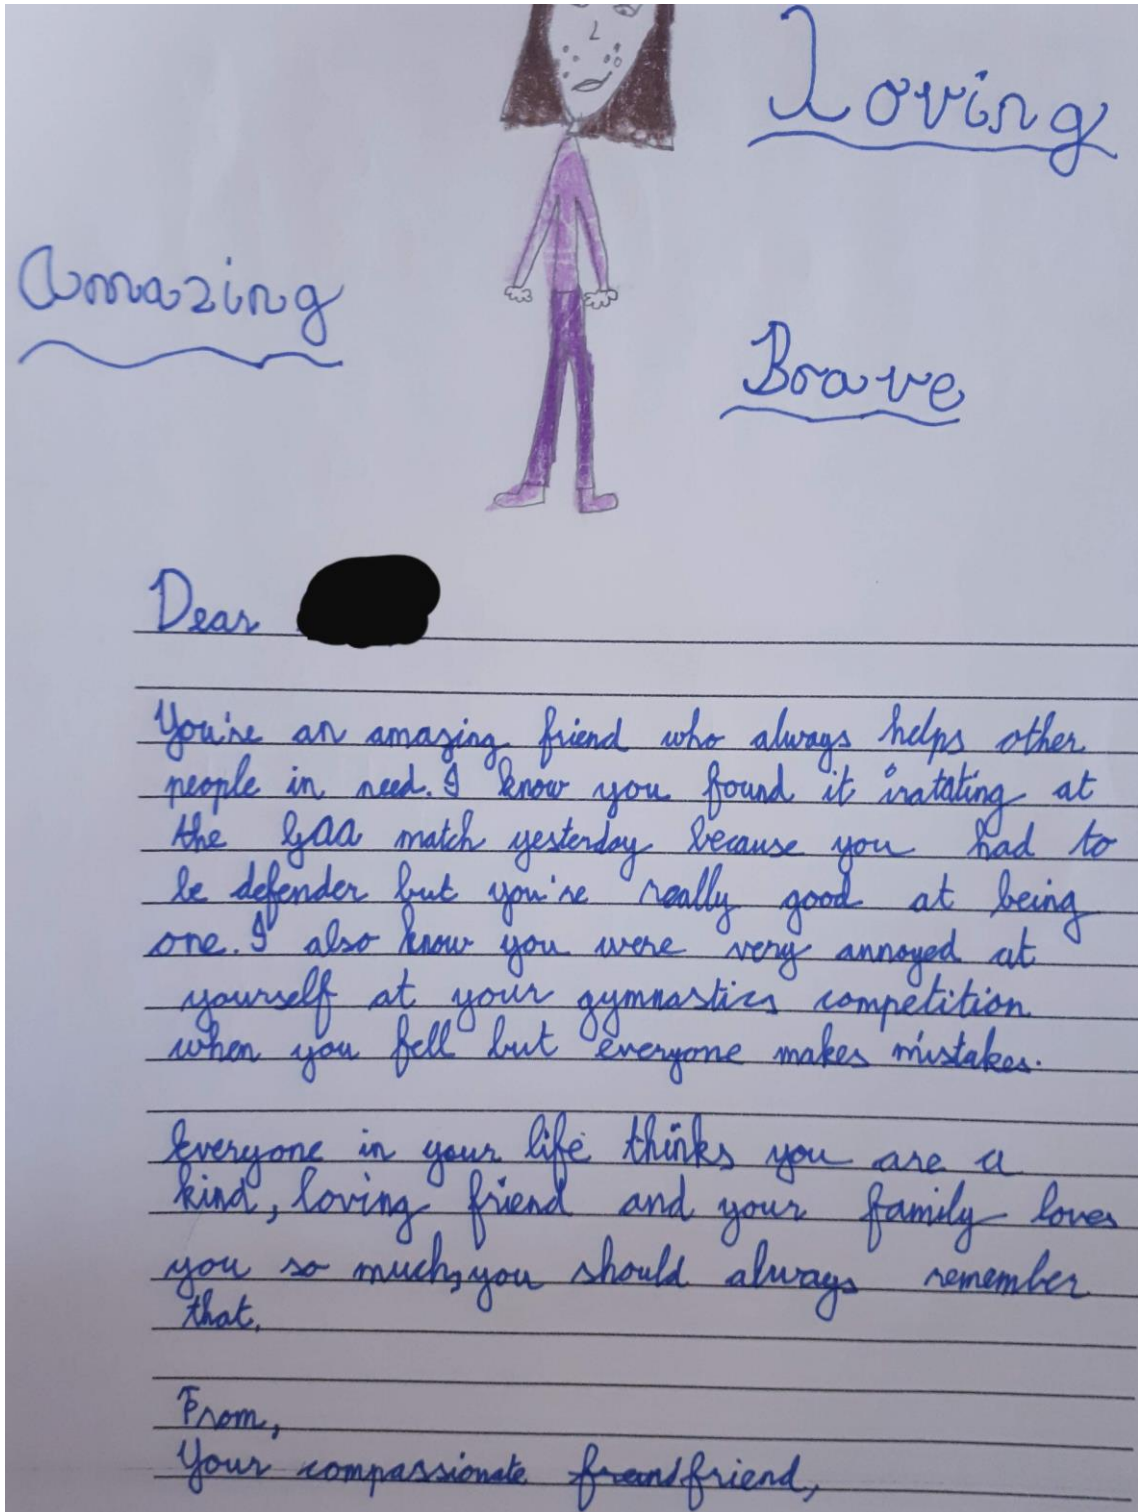 Loving
Amazing
Brave
Dear
You're an amazing friend who always helps other
people in need. I know you found it iratating at
the Gaa match yesterday because you had to
be defender but you're really good at being
one. I also know you were very annoyed at
yourself at your gymnastics competition
when you fell but everyone makes mistakes.
Everyone in your life thinks you are a
kind, loving friend and your family loves
you so much, you should always remember
that.
From,
Your compassionate freand friend,